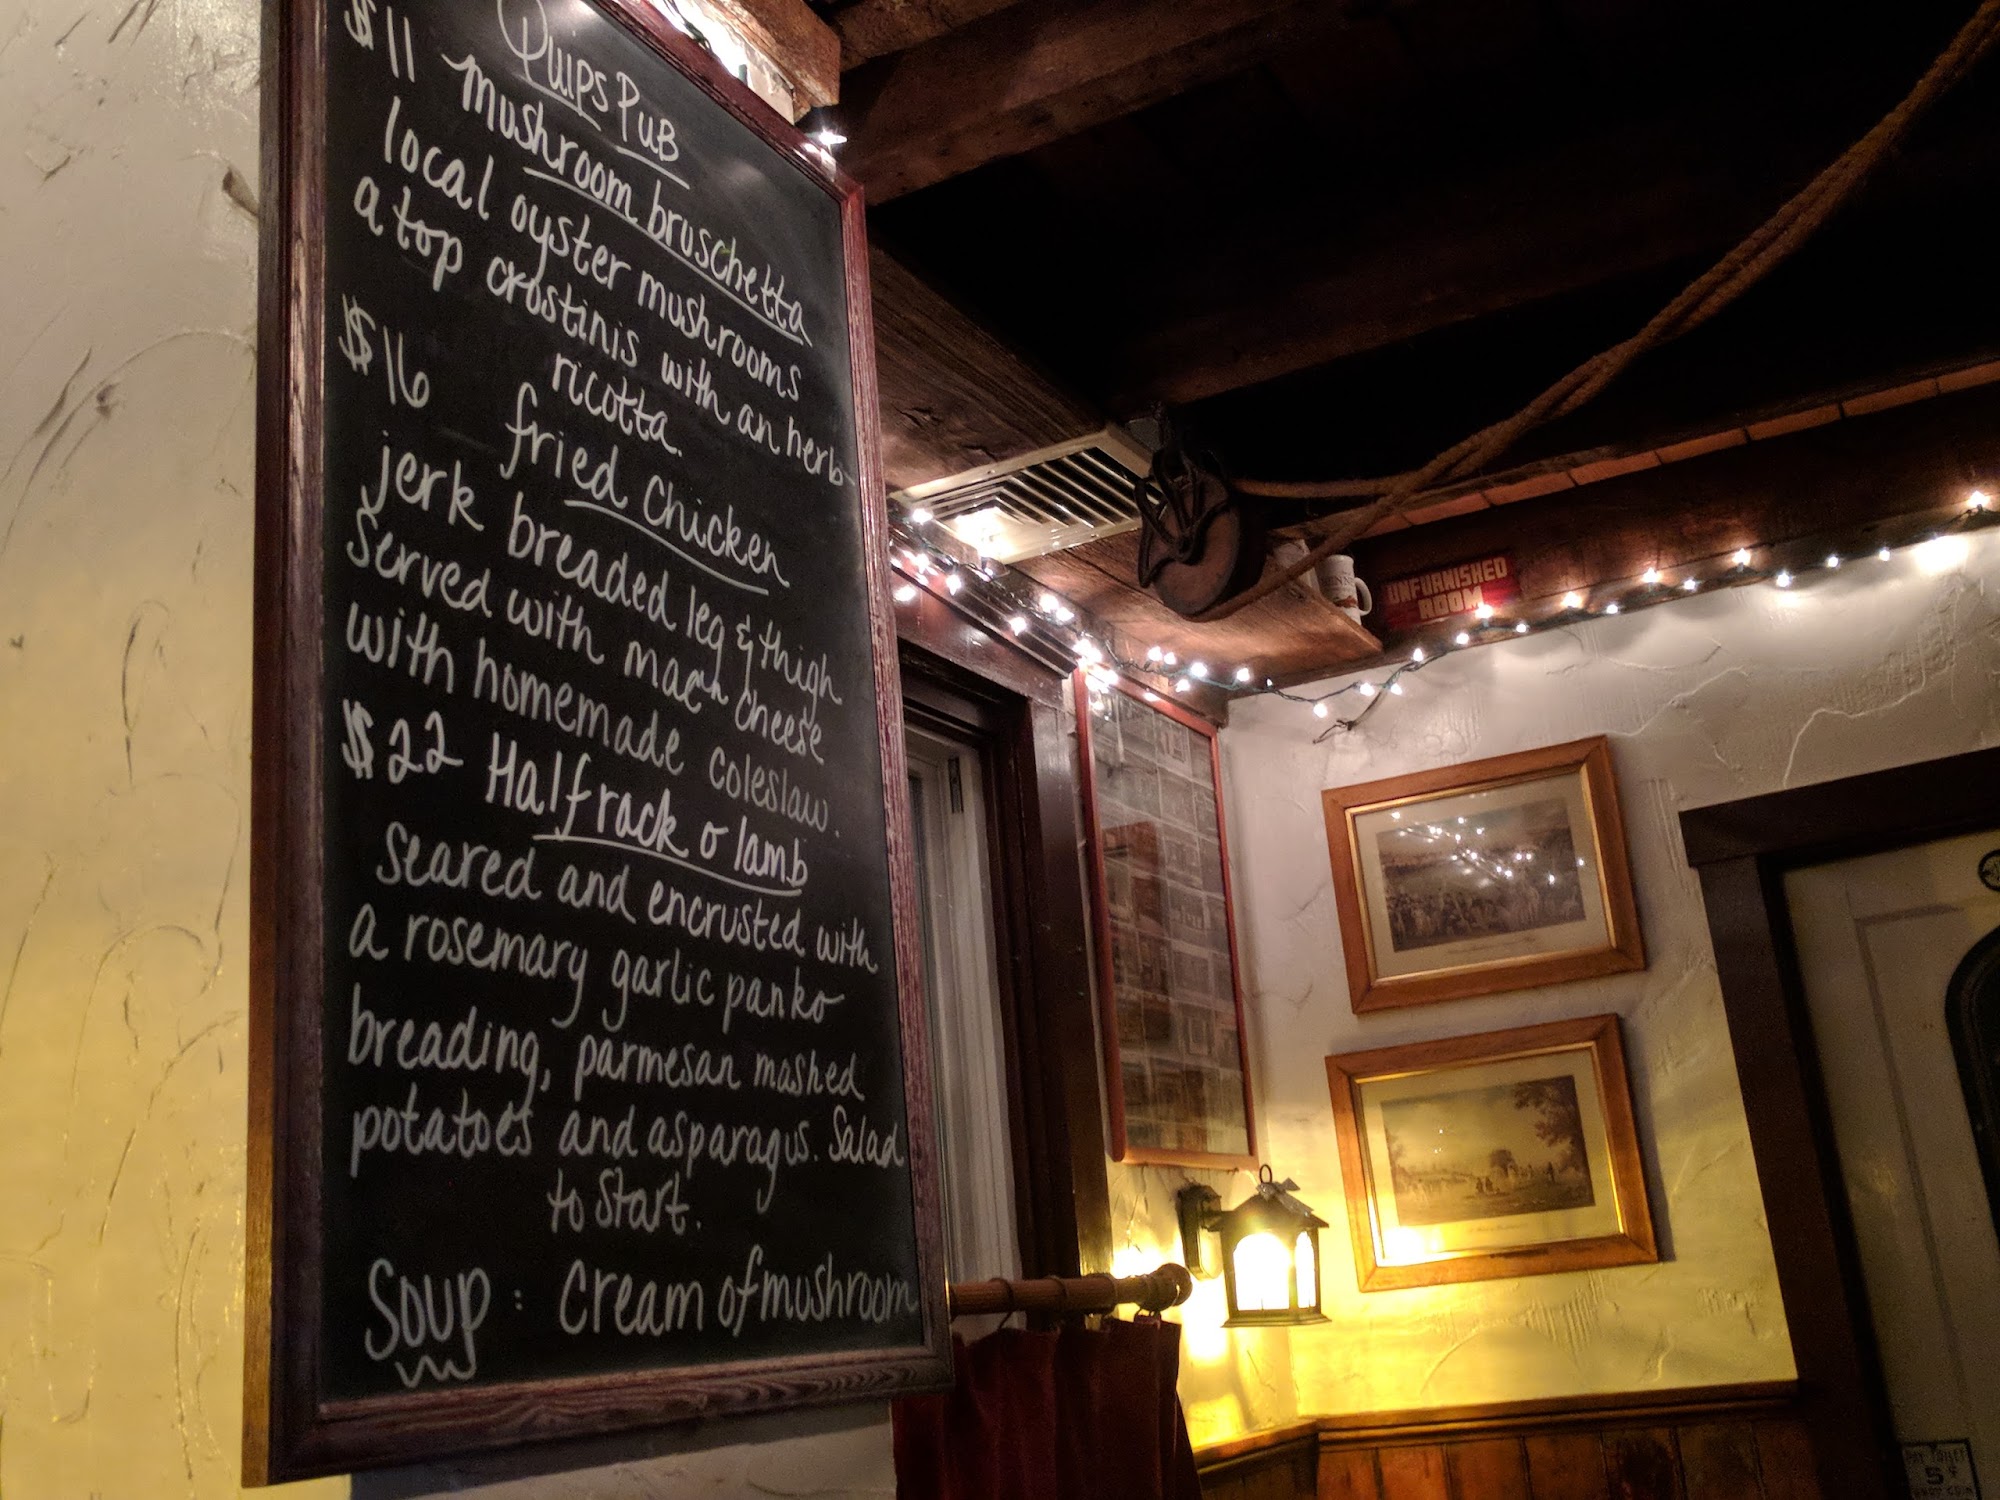 Quips Pub
$11 mushroom bruschetta
local oyster mushrooms
atop crostinis with an herb-
ricotta.
$16 fried chicken
jerk breaded leg & thigh
Served with mac n cheese
with homemade coleslaw.
$22 Half rack o lamb
seared and encrusted with
a rosemary garlic panko
breading, parmesan mashed
potatoes and asparagus. Salad
to start.
Soup: Cream of mushroom
UNFURNISHED
ROOM
5¢